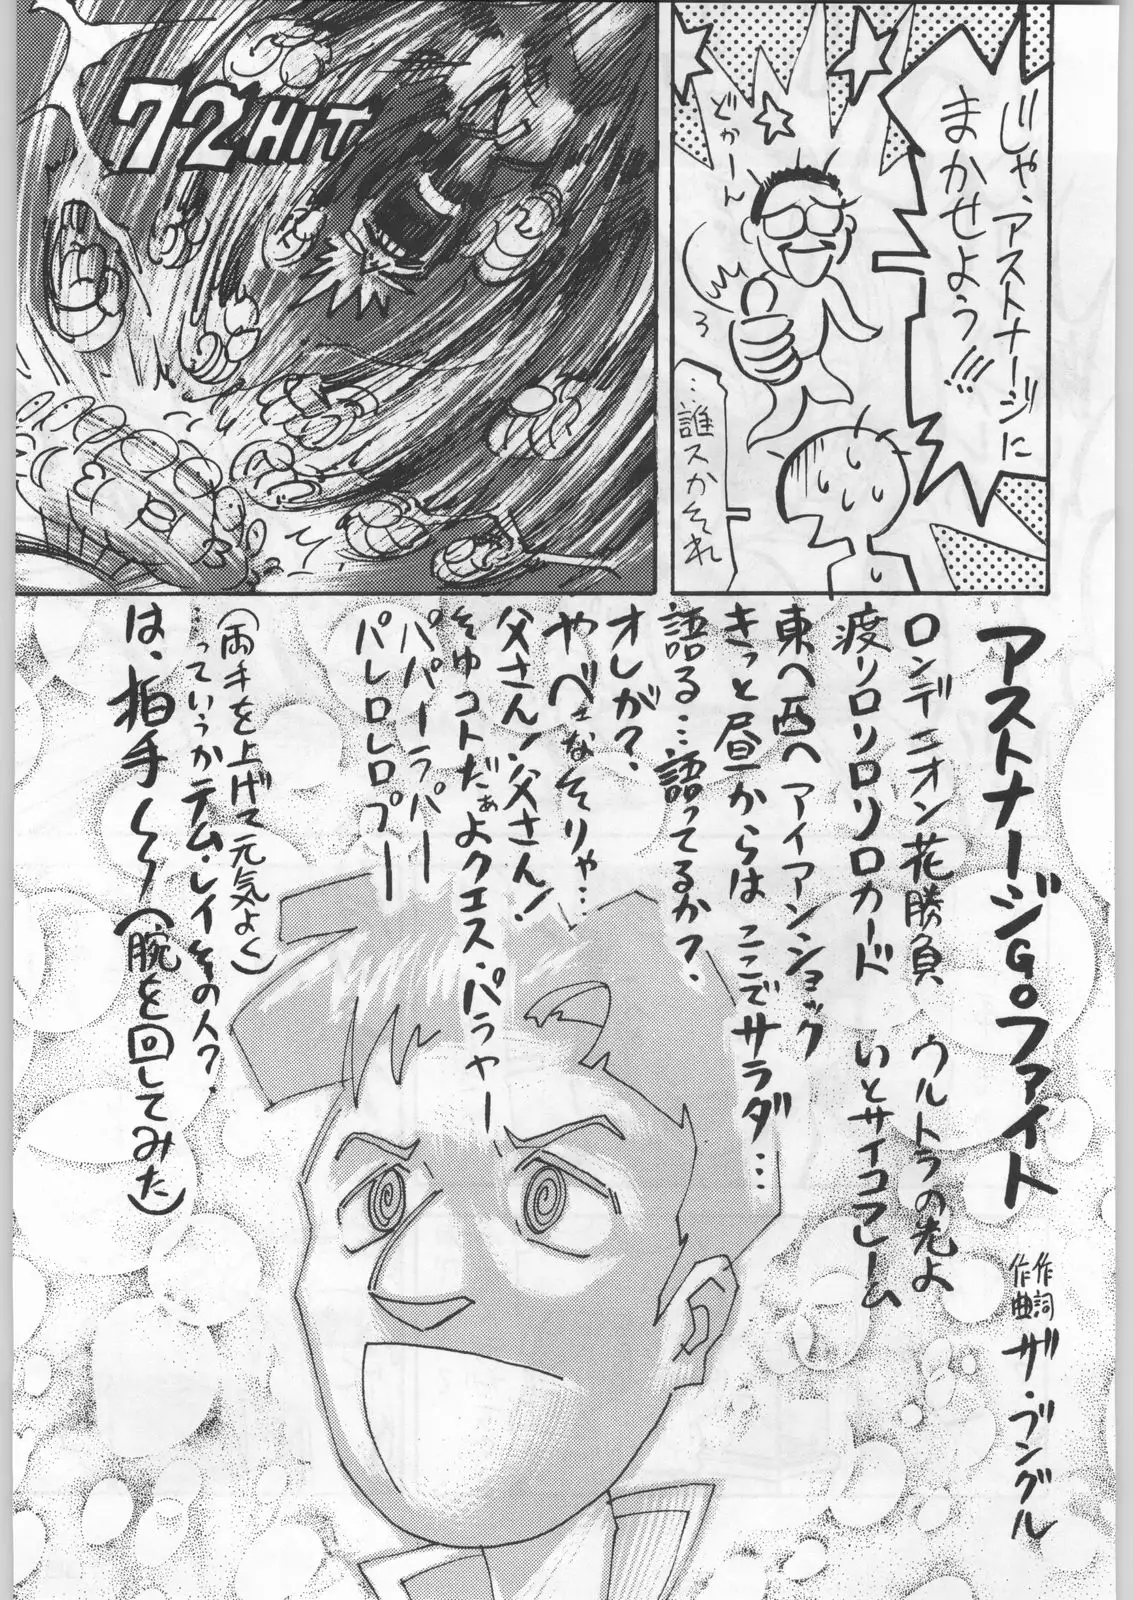 じゃ、アストナージに
まかせよう!!!
どかーん
…誰スかそれ
72HIT
アストナージG。ファイト
作詞
作曲
ザ・ブングル
ロンデニオン花勝負 ウルトラの光よ
渡りロリロリロリロカード いとサイコフレーム
東へ西へアイアンショック
きっと昼からは ここでサラダ…
語る…語ってるか?.
オレが?.
やべェなそりゃ…
父さん!父さん!
そゆコトだぁよクエス・パラヤー
パパーラパパー
パレロレロプー
(両手を上げて元気よく)
…っていうかテム・レイその人?.
は、拍手~~(腕を回してみた)